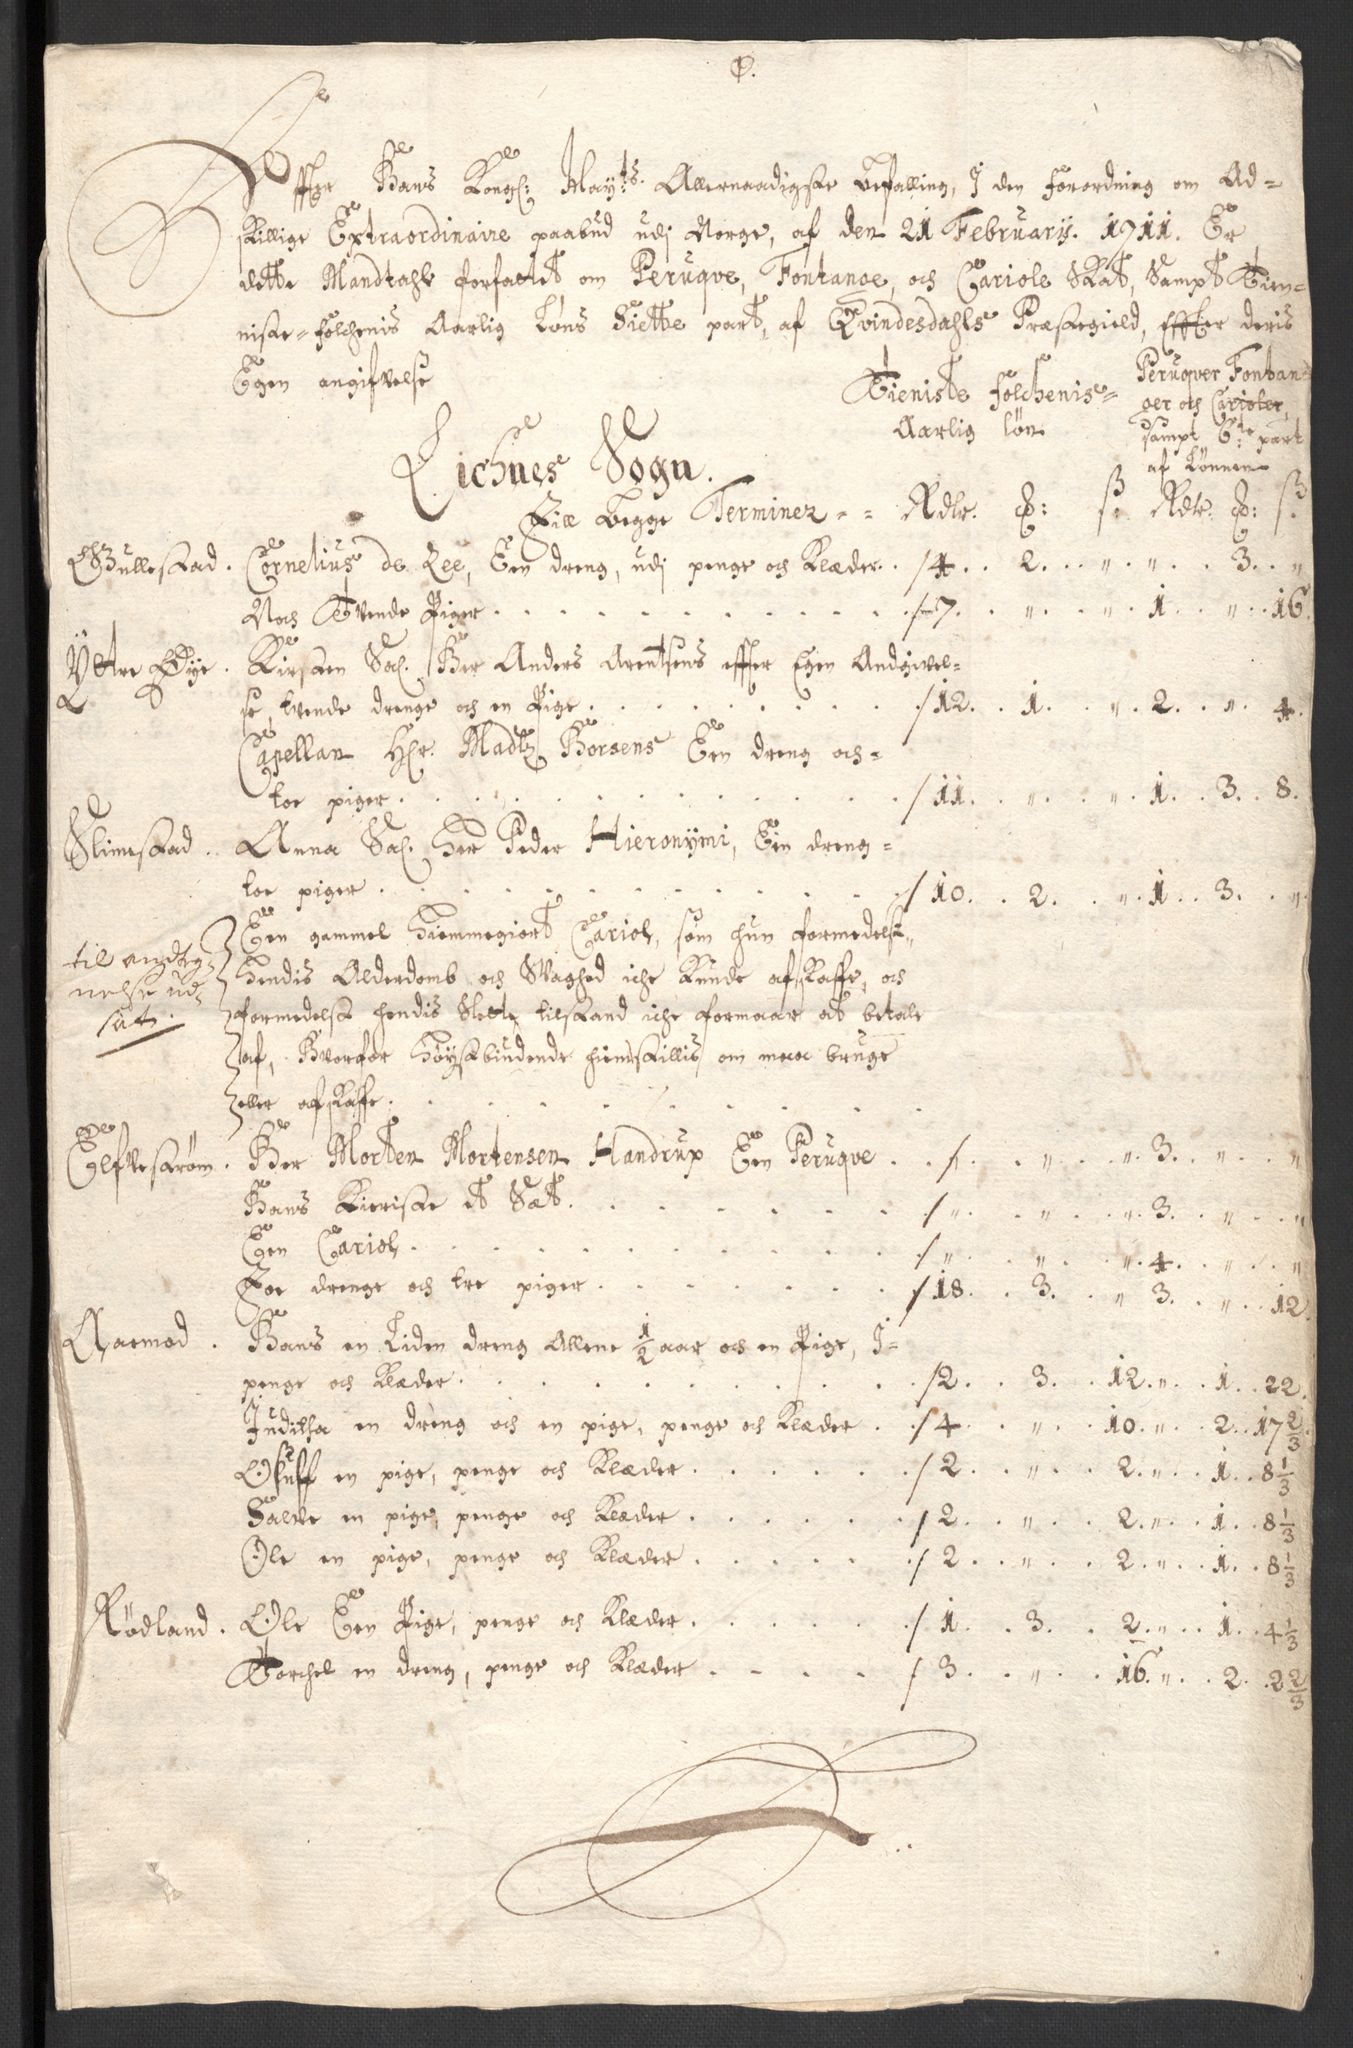 Φ.
Effter Hans Kongl: May:ts Allernaadigste befalling, I den forordning om Ad=
skillige Extraordinaire paabud udj Norge, af den 21 February. 1711. Er
dette Mandtahl forfattet om Peruqve, Fontange, och Cariole Skat, Sampt Tien=
niste=folchenis Aarlig Løns Siette part, af Qvindesdahls Præstegield, Effter deris
Egen angifvelse
Tieniste folchenis=
Aarlig løn
Peruqver Fontan=
ger och Carioler,
sampt 6:te part
af Lønnen
Lichnes Sogn.
Till begge Terminer - - Rdlr. ort: s. Rdlr. ort: s.
Gullestad. Cornelius de Lee, Een dreng, udj penge och Klæder. /4. 2. " " 3. "
Noch Tvende Piger /7. " " 1. " 16.
Yttre Øye. Kirsten Sal. Her Anders Arentsens effter Egen Andgivel=
se, tvende drenge och en Pige /12. 1. " 2. " 4.
Capellan Hr. Madtz Borsens Een dreng och=
toe piger /11. " " 1. 3. 8.
Slimestad. Anna Sal. Her Peder Hieronymi, Een dreng=
toe piger /10. 2. " 1. 3. "
Een gammel hiemmegiort Cariol, som hun formedelst
til andteg=
nelse ud=
sat.
hendis Alderdomb och Svaghed iche kunde afskaffe, och
formedelst hendis Slette tilstand iche formaar at betale
af, hvorfor høystbindende hiemstillis om maa bruge
eller afskaffe
Elfvestrøm. Her Morten Mortensen Handrup Een Peruqve /. " " 3. " "
Hans Kieriste et Sæt /" " " 3. " "
Een Cariol /" " " 4. " "
Toe drenge och tre piger /18. 3. " 3. " 12.
Aamod. Hans en Liden dreng Allene 1/2 aar och en Pige, I=
penge och Klæder /2. 3. 12. " 1. 22.
Juditha en dreng och en pige, penge och Klæder /4 " 10. " 2. 17 2/3.
Oluff en pige, penge och Klæder /2. " 2. " 1. 8 1/3
Salve en pige, penge och Klæder /2. " 2. " 1. 8 1/3
Ole en pige, penge och Klæder /2. " 2. " 1. 8 1/3
Rødland. Ole Een Pige, penge och Klæder /1. 3. 2. " 1. 4 1/3
Torchel en dreng, penge och Klæder /3. " 16. " 2. 2 2/3